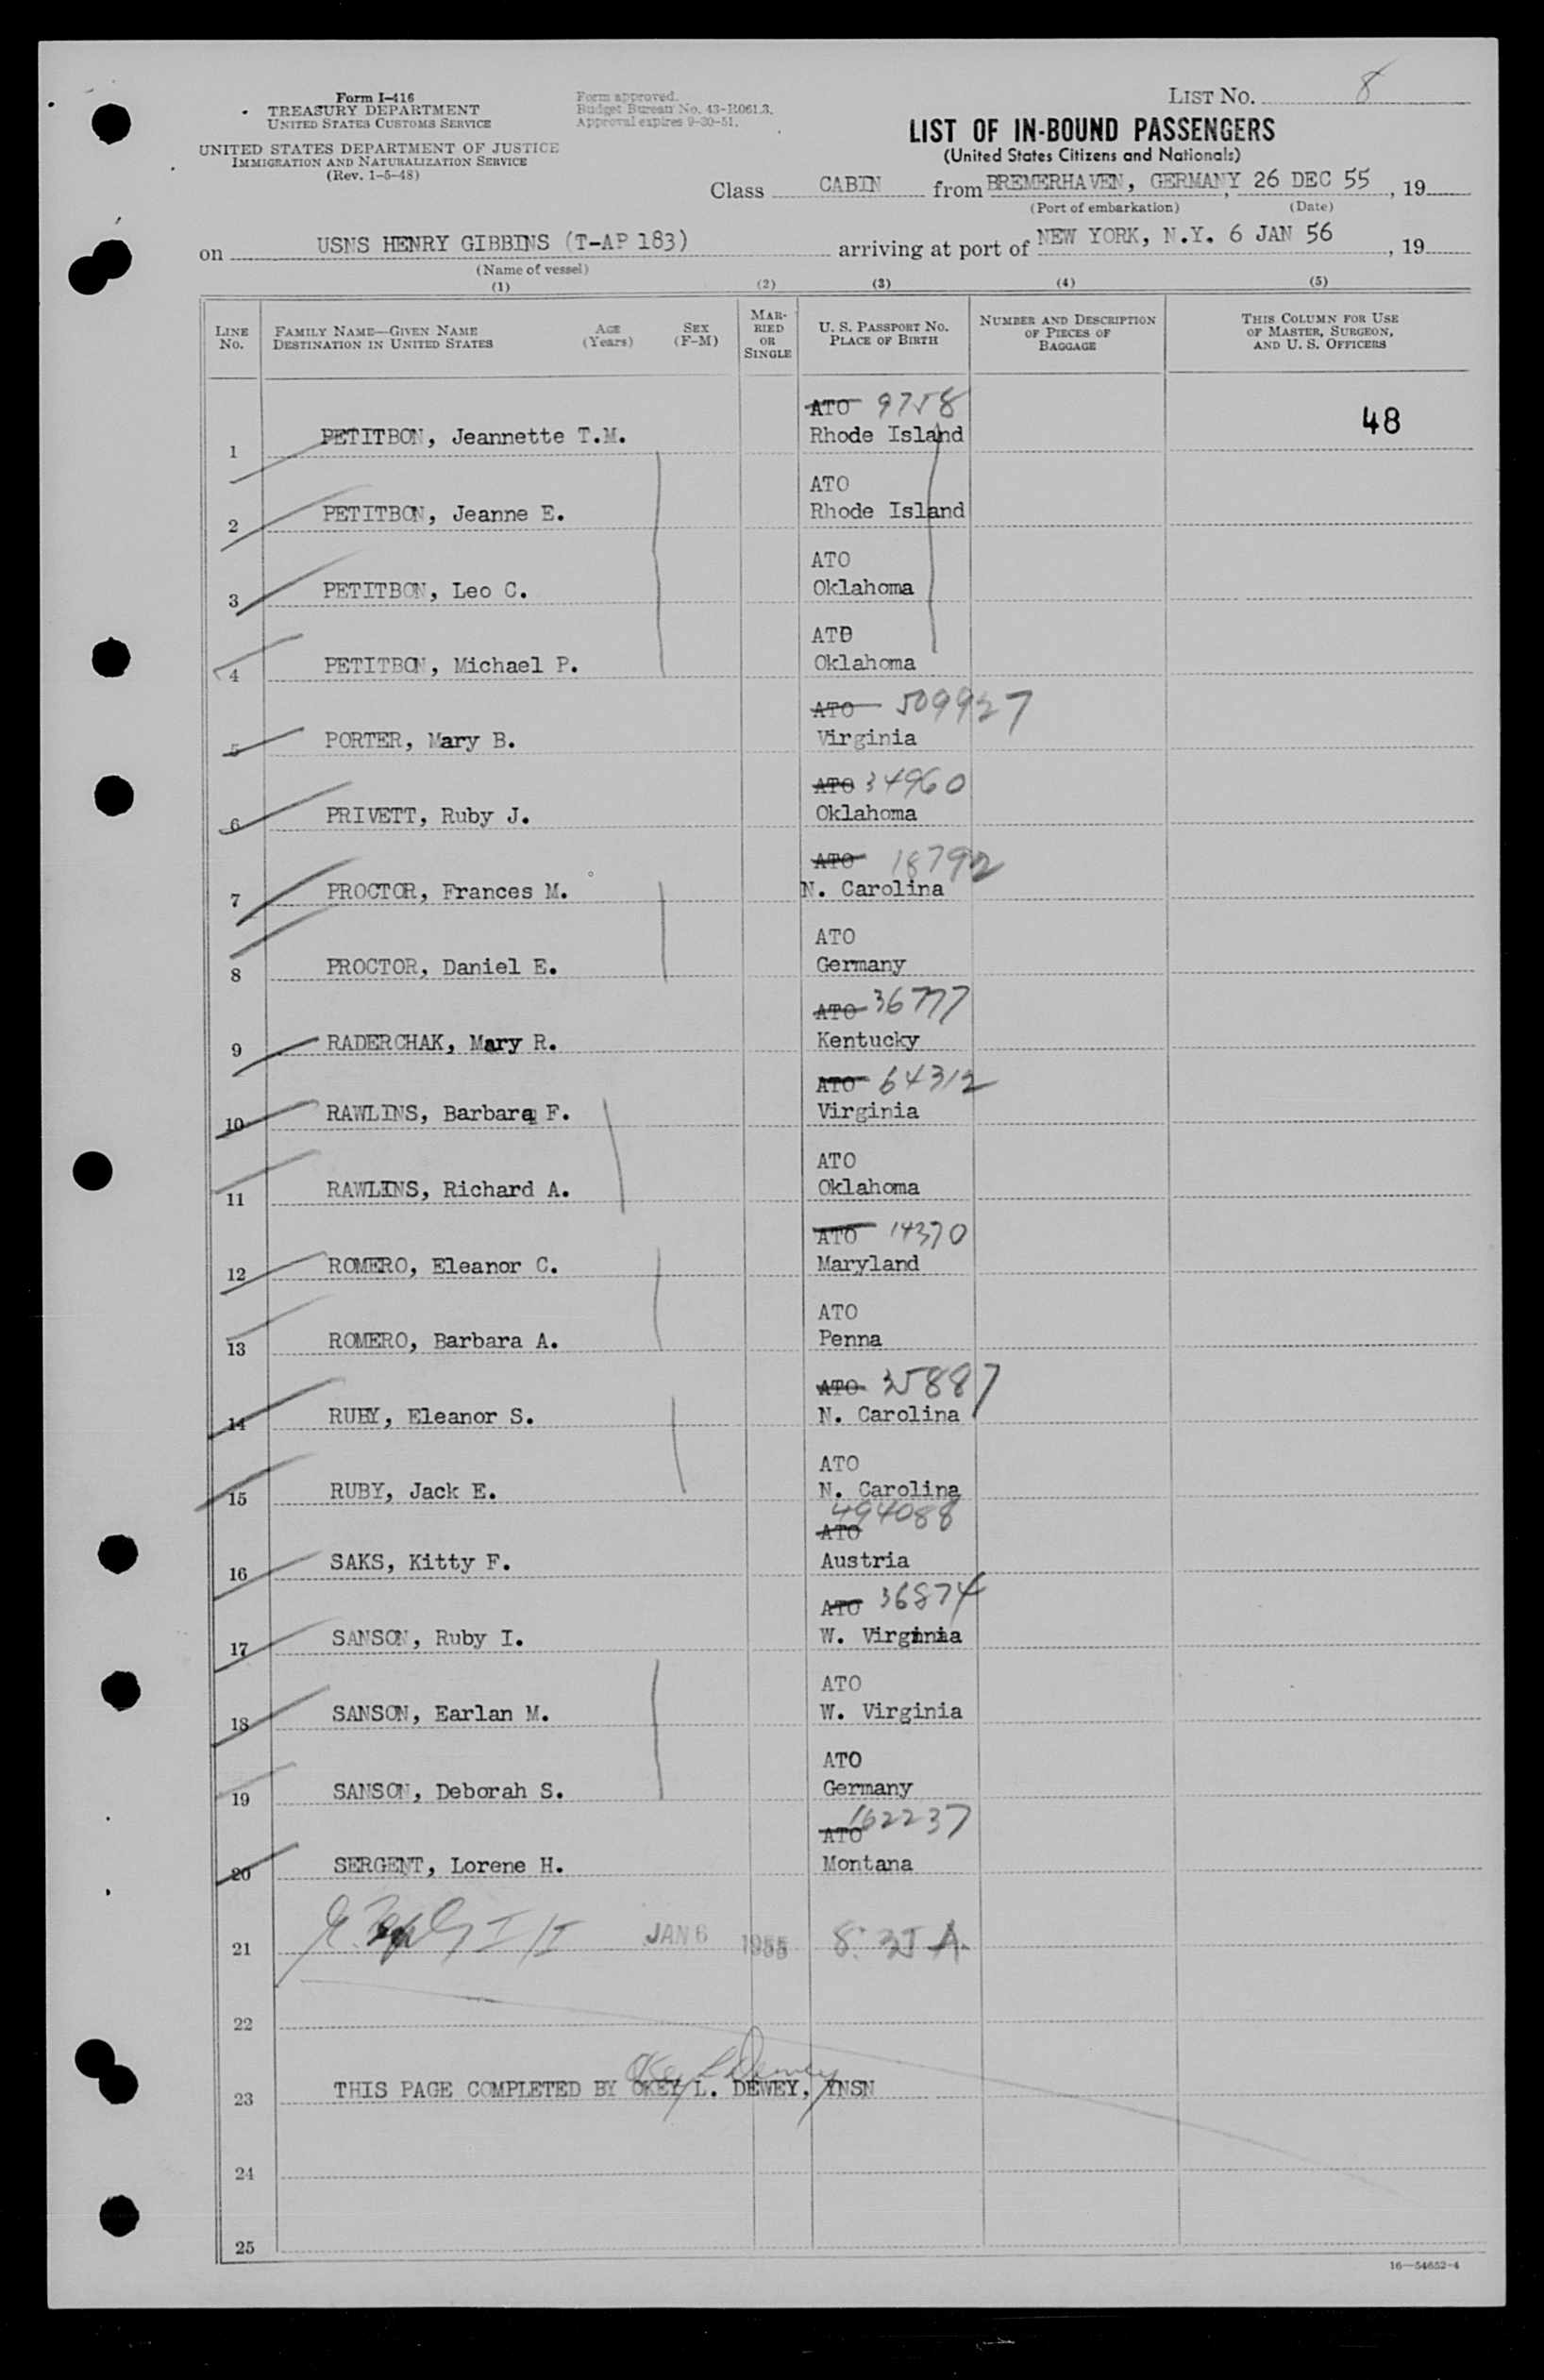 Form I-416
TREASURY DEPARTMENT
UNITED STATES CUSTOMS SERVICE
UNITED STATES DEPARTMENT OF JUSTICE
IMMIGRATION AND NATURALIZATION SERVICE
(Rev. 1-5-48)
Form approved.
Budget Bureau No. 43-R061.3.
Approval expires 9-30-51.
LIST No. 8
LIST OF IN-BOUND PASSENGERS
(United States Citizens and Nationals)
Class CABIN from BREMERHAVEN, GERMANY, 26 DEC 55, 19
(Port of embarkation) (Date)
on USNS HENRY GIBBINS (T-AP 183) arriving at port of NEW YORK, N.Y. 6 JAN 56, 19
(Name of vessel)
(1) (2) (3) (4) (5)
LINE No. FAMILY NAME—GIVEN NAME DESTINATION IN UNITED STATES AGE (Years) SEX (F-M) MARRIED OR SINGLE U. S. PASSPORT No. PLACE OF BIRTH NUMBER AND DESCRIPTION OF PIECES OF BAGGAGE THIS COLUMN FOR USE OF MASTER, SURGEON, AND U. S. OFFICERS
ATO 9758
48
1 PETITBON, Jeannette T.M. Rhode Island
ATO
2 PETITBON, Jeanne E. Rhode Island
ATO
3 PETITBON, Leo C. Oklahoma
ATO
4 PETITBON, Michael P. Oklahoma
ATO 509927
5 PORTER, Mary B. Virginia
ATO 34960
6 PRIVETT, Ruby J. Oklahoma
ATO 18792
7 PROCTOR, Frances M. N. Carolina
ATO
8 PROCTOR, Daniel E. Germany
ATO 36777
9 RADERCHAK, Mary R. Kentucky
ATO 64312
10 RAWLINS, Barbara F. Virginia
ATO
11 RAWLINS, Richard A. Oklahoma
ATO 14370
12 ROMERO, Eleanor C. Maryland
ATO
13 ROMERO, Barbara A. Penna
ATO 35887
14 RUBY, Eleanor S. N. Carolina
ATO
15 RUBY, Jack E. N. Carolina
494088
ATO
16 SAKS, Kitty F. Austria
ATO 36874
17 SANSON, Ruby I. W. Virginia
ATO
18 SANSON, Earlan M. W. Virginia
ATO
19 SANSON, Deborah S. Germany
ATO 162237
20 SERGENT, Lorene H. Montana
21 JAN 6 8:35 A.
22
Okey L Dewey
23 THIS PAGE COMPLETED BY OKEY L. DEWEY, YNSN
24
25
16—54652-4